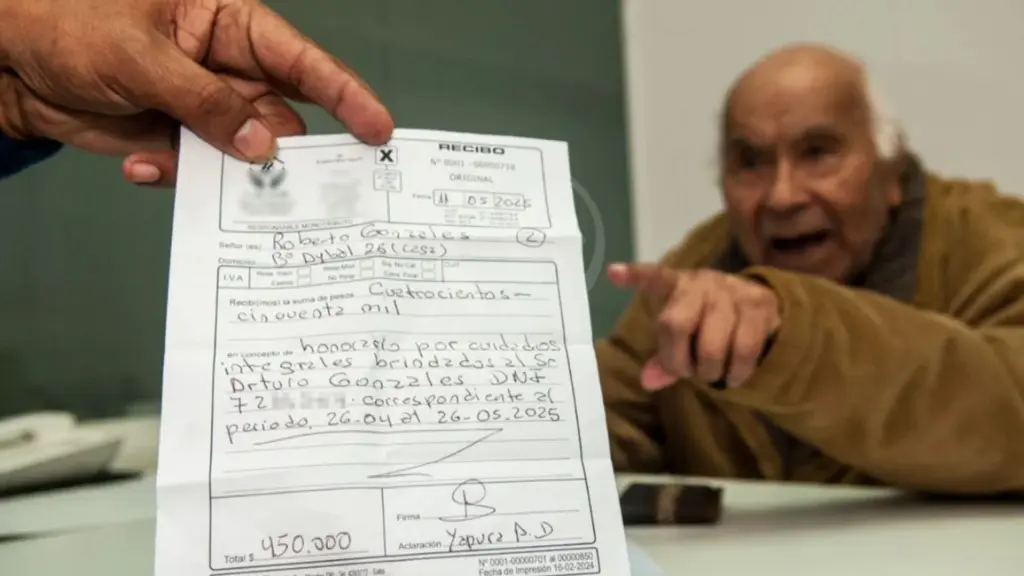 RECIBO
X
Nº 0001 - 00000718
ORIGINAL
Fecha 11 05 2025
RESPONSABLE MONOTRIBUTO
Señor (es): Roberto Gonzales
2
Domicilio: Bº Dybal 26 (cesz)
I.V.A Resp. Insc. Resp. Mon. Eq. No Cat. CUIT
Exento No Resp. Cons. Final
Recibí(mos) la suma de pesos Cuatrocientos-
cincuenta mil
en concepto de honorario por cuidados
integrales brindados al Sr
Arturo Gonzales DNI
72 correspondiente al
periodo, 26-04 al 26-05-2025
Firma B
Total $ 450.000
Aclaración Yapura B.D
Nº 0001-00000701 al 00000850
Fecha de Impresión 16-02-2024